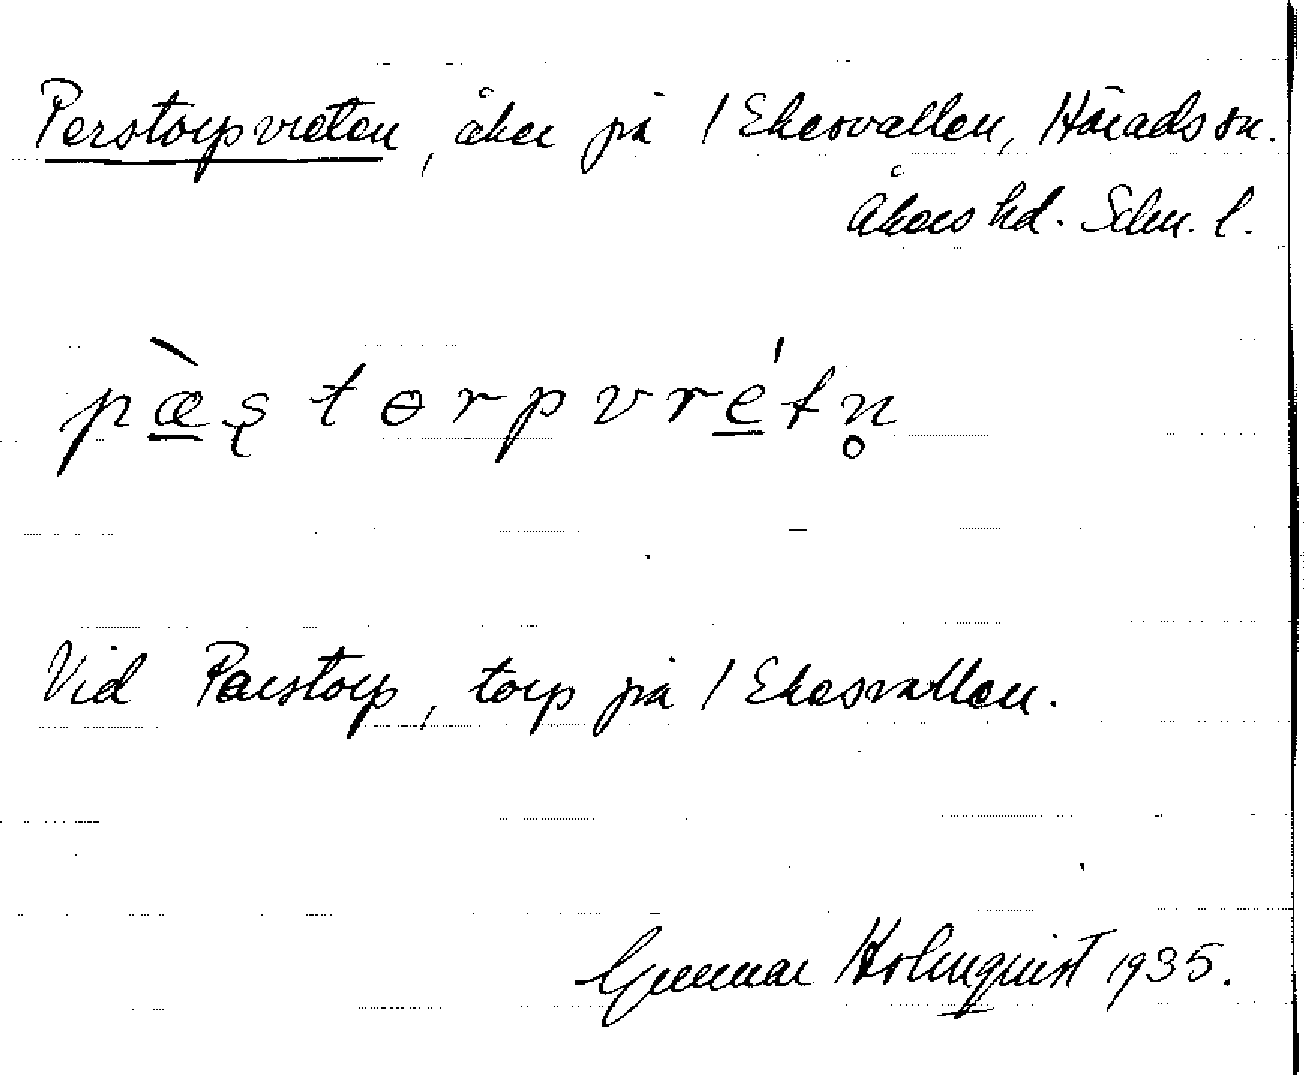 Perstorpvreten, åker på 1 Ekesvallen, Härads sn.
Åkers hd. Sdm. l.
pæ̀ştɵrpvrétn̥
Vid Perstorp, torp på 1 Ekesvallen.
Gunnar Holmquist 1935.